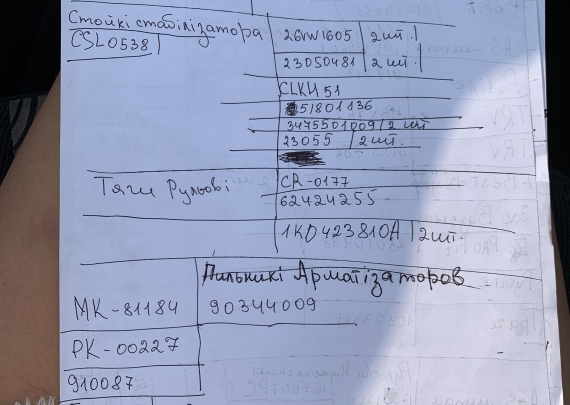 Стойкі стабілізатора
CSL0538
26VW1605 | 2 шт.
23050481 | 2 шт
CLKH51
51801136
3475501009 | 2 шт
23055 | 2 шт.
Тяги Рульові
CR-0177
62424255
1K0423810A | 2 шт.
Пильникі Арматізаторов
МК-81184
90344009
РК-00227
910087